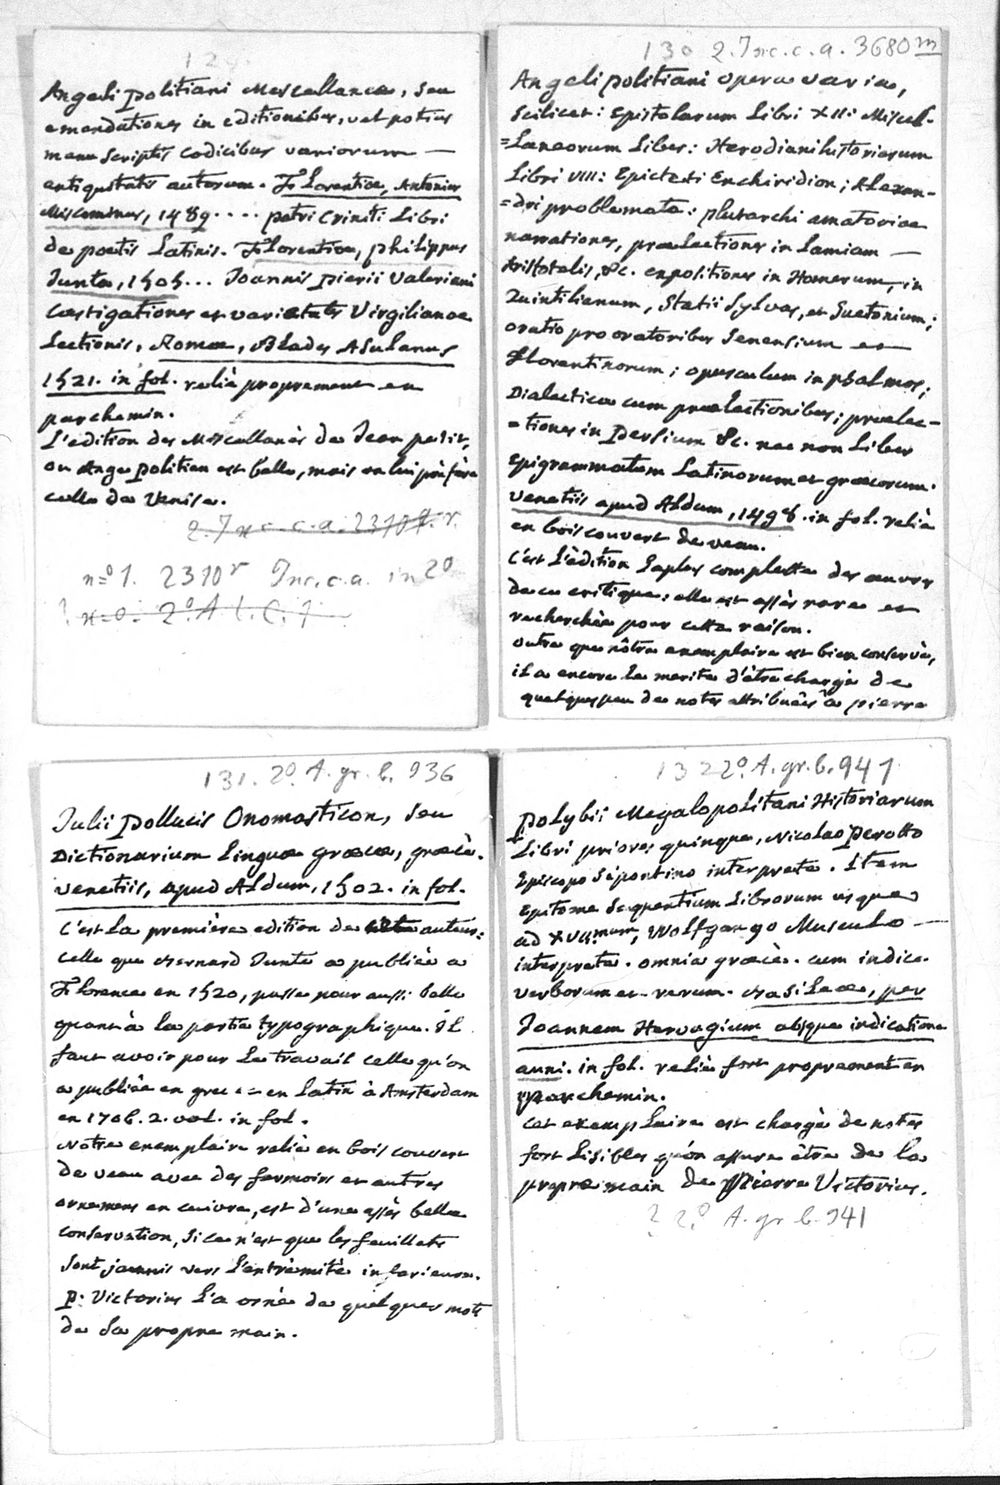 129.
Angeli politiani Miscellanea, seu
emendationes in editionibus, vel potius
manu scriptis codicibus variorum —
antiquitatis autorum. Florentiae, Antonius
Miscominus, 1489 .... petri Criniti Libri
de poetis Latinis. Florentiae, philippus
Junta, 1505... Joannis pierii Valeriani
Castigationes et varietates Virgilianae
Lectionis, Romae, Blados Asulanus
1521. in fol. relié proprement en
parchemin.
L'édition des Miscellanés de Jean petit,
ou Ange politien est belle, mais on lui préfère
celle de Venise.
2. Inc. c. a. 2310 r
n=o 1. 2310r Inc. c.a. in 2o
130 2. Inc. c. a. 3680 m
Angeli politiani opera varia,
scilicet: Epistolarum Libri XII: Miscel-
=Laneorum Liber: Herodiani historiarum
Libri VIII: Epicteti Enchiridion; Alexan-
=dri problemata: plutarchi amatoriae
narrationes, praelectiones in Lamiam —
Aristotelis, &c. expositiones in Homerum, in
Quintilianum, Statii Sylvas, et Suetonium;
oratio pro oratoribus Senensium et —
Florentinorum; opusculum in psalmos;
Dialectica cum praelectionibus; praelec-
=tiones in Persium &c. nec non Liber
Epigrammatum Latinorum et graecorum.
venetiis apud Aldum, 1498. in fol. relié
en bois couvert de veau.
C'est L'édition La plus complette des oeuvres
de ce critique; elle est assés rare et
recherchée pour cette raison.
outre que nôtre exemplaire est bien conservé,
il a encore le merite d'être chargé de
quelques peu de notes attribuées à pierre
131. 2o A. gr. b. 936
Julii Pollucis Onomasticon, seu
Dictionarium Linguae graecae, graecè.
venetiis, apud Aldum, 1502. in fol.
C'est La première edition de cet auteur:
celle que Bernard Junta a publiée a
Florence en 1520, passe pour aussi belle
quant à La partie typographique. Il
faut avoir pour Le travail celle qu'on
a publiée en grec et en Latin à Amsterdam
en 1706. 2. vol. in fol.
Notre exemplaire relié en bois couvert
de veau avec des fermoirs et autres
ornemens en cuivre, est d'une assés belle
conservation, si ce n'est que les feuillets
sont jaunis vers L'extrèmité inferieure.
P. Victorius L'a orné de quelques mots
de sa propre main.
132 2o. A. gr. b. 941
polybii Megalopolitani Historiarum
Libri priores quinque, Nicolao perotto
Episcopo Sipontino interprete. Item
Epitome Sequentium Librorum usque
ad XVIImum, Wolfgango Musculo —
interprete. omnia graecè. cum indice.
verborum et rerum. Basileae, per
Joannem Hervagium absque indicatione
anni. in fol. relié fort proprement en
parchemin.
Cet exemplaire est chargé de notes
fort Lisibles qu'on assure être de la
propre main de Pierre Victorius.
? 2o A. gr. b. 941